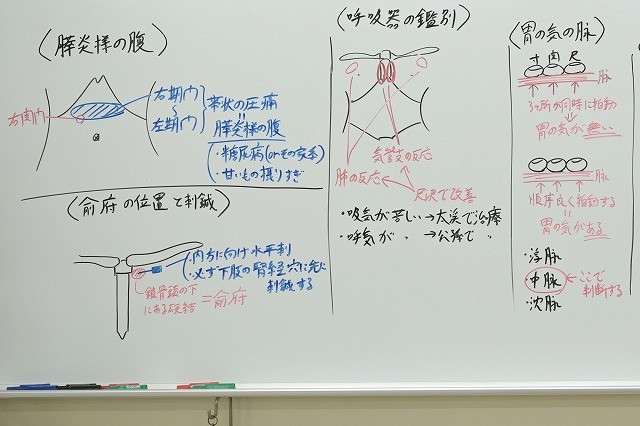 (膵炎様の腹)
右期門
左期門
右関門
帯状の圧痛
膵炎様の腹
・糖尿病(orその家系)
・甘いもの摂りすぎ
(俞府の位置と刺鍼)
・内方に向け水平刺
・必ず下肢の腎経穴に先に
刺鍼する
鎖骨頭の下
にある硬結
=俞府
(呼吸器の鑑別)
気管支の反応
肺の反応
尺沢で改善
・吸気が苦しい→太渓で治療
・呼気が 〃 →公孫で 〃
(胃の気の脉)
寸 関 尺
脉
3ヶ所が同時に拍動
胃の気が無い
脉
順序良く拍動する
胃の気がある
・浮脉
・中脉
←ここで
判断する
・沈脉